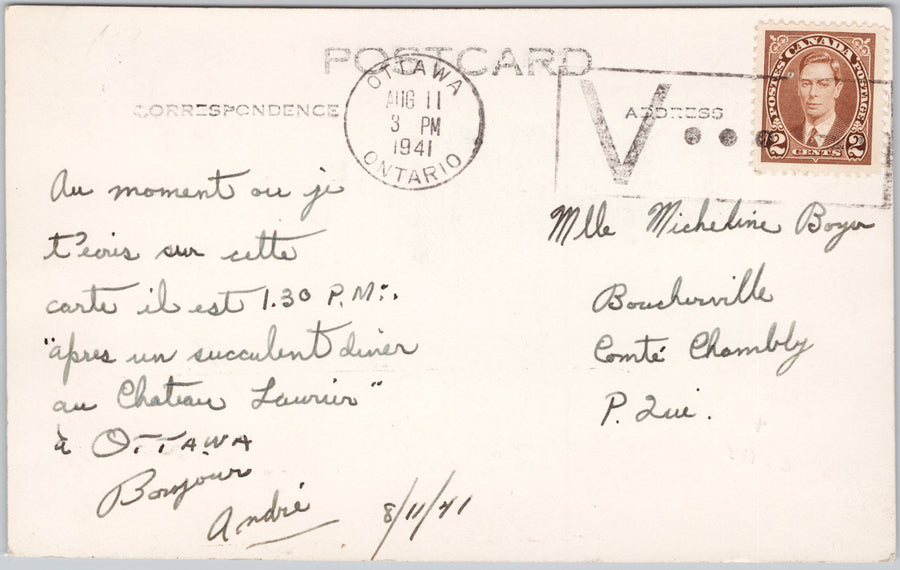 POSTCARD
CORRESPONDENCE
ADDRESS
OTTAWA
AUG 11
3 PM
1941
ONTARIO
V...
CANADA
POSTES POSTAGE
2 CENTS 2
Au moment ou je
t'écris sur cette
carte il est 1.30 P.M.
"après un succulent diner
au Chateau Laurier"
à OTTAWA
Bonjour
André
8/11/41
Mlle Micheline Boyer
Boucherville
Comté Chambly
P. Qué.